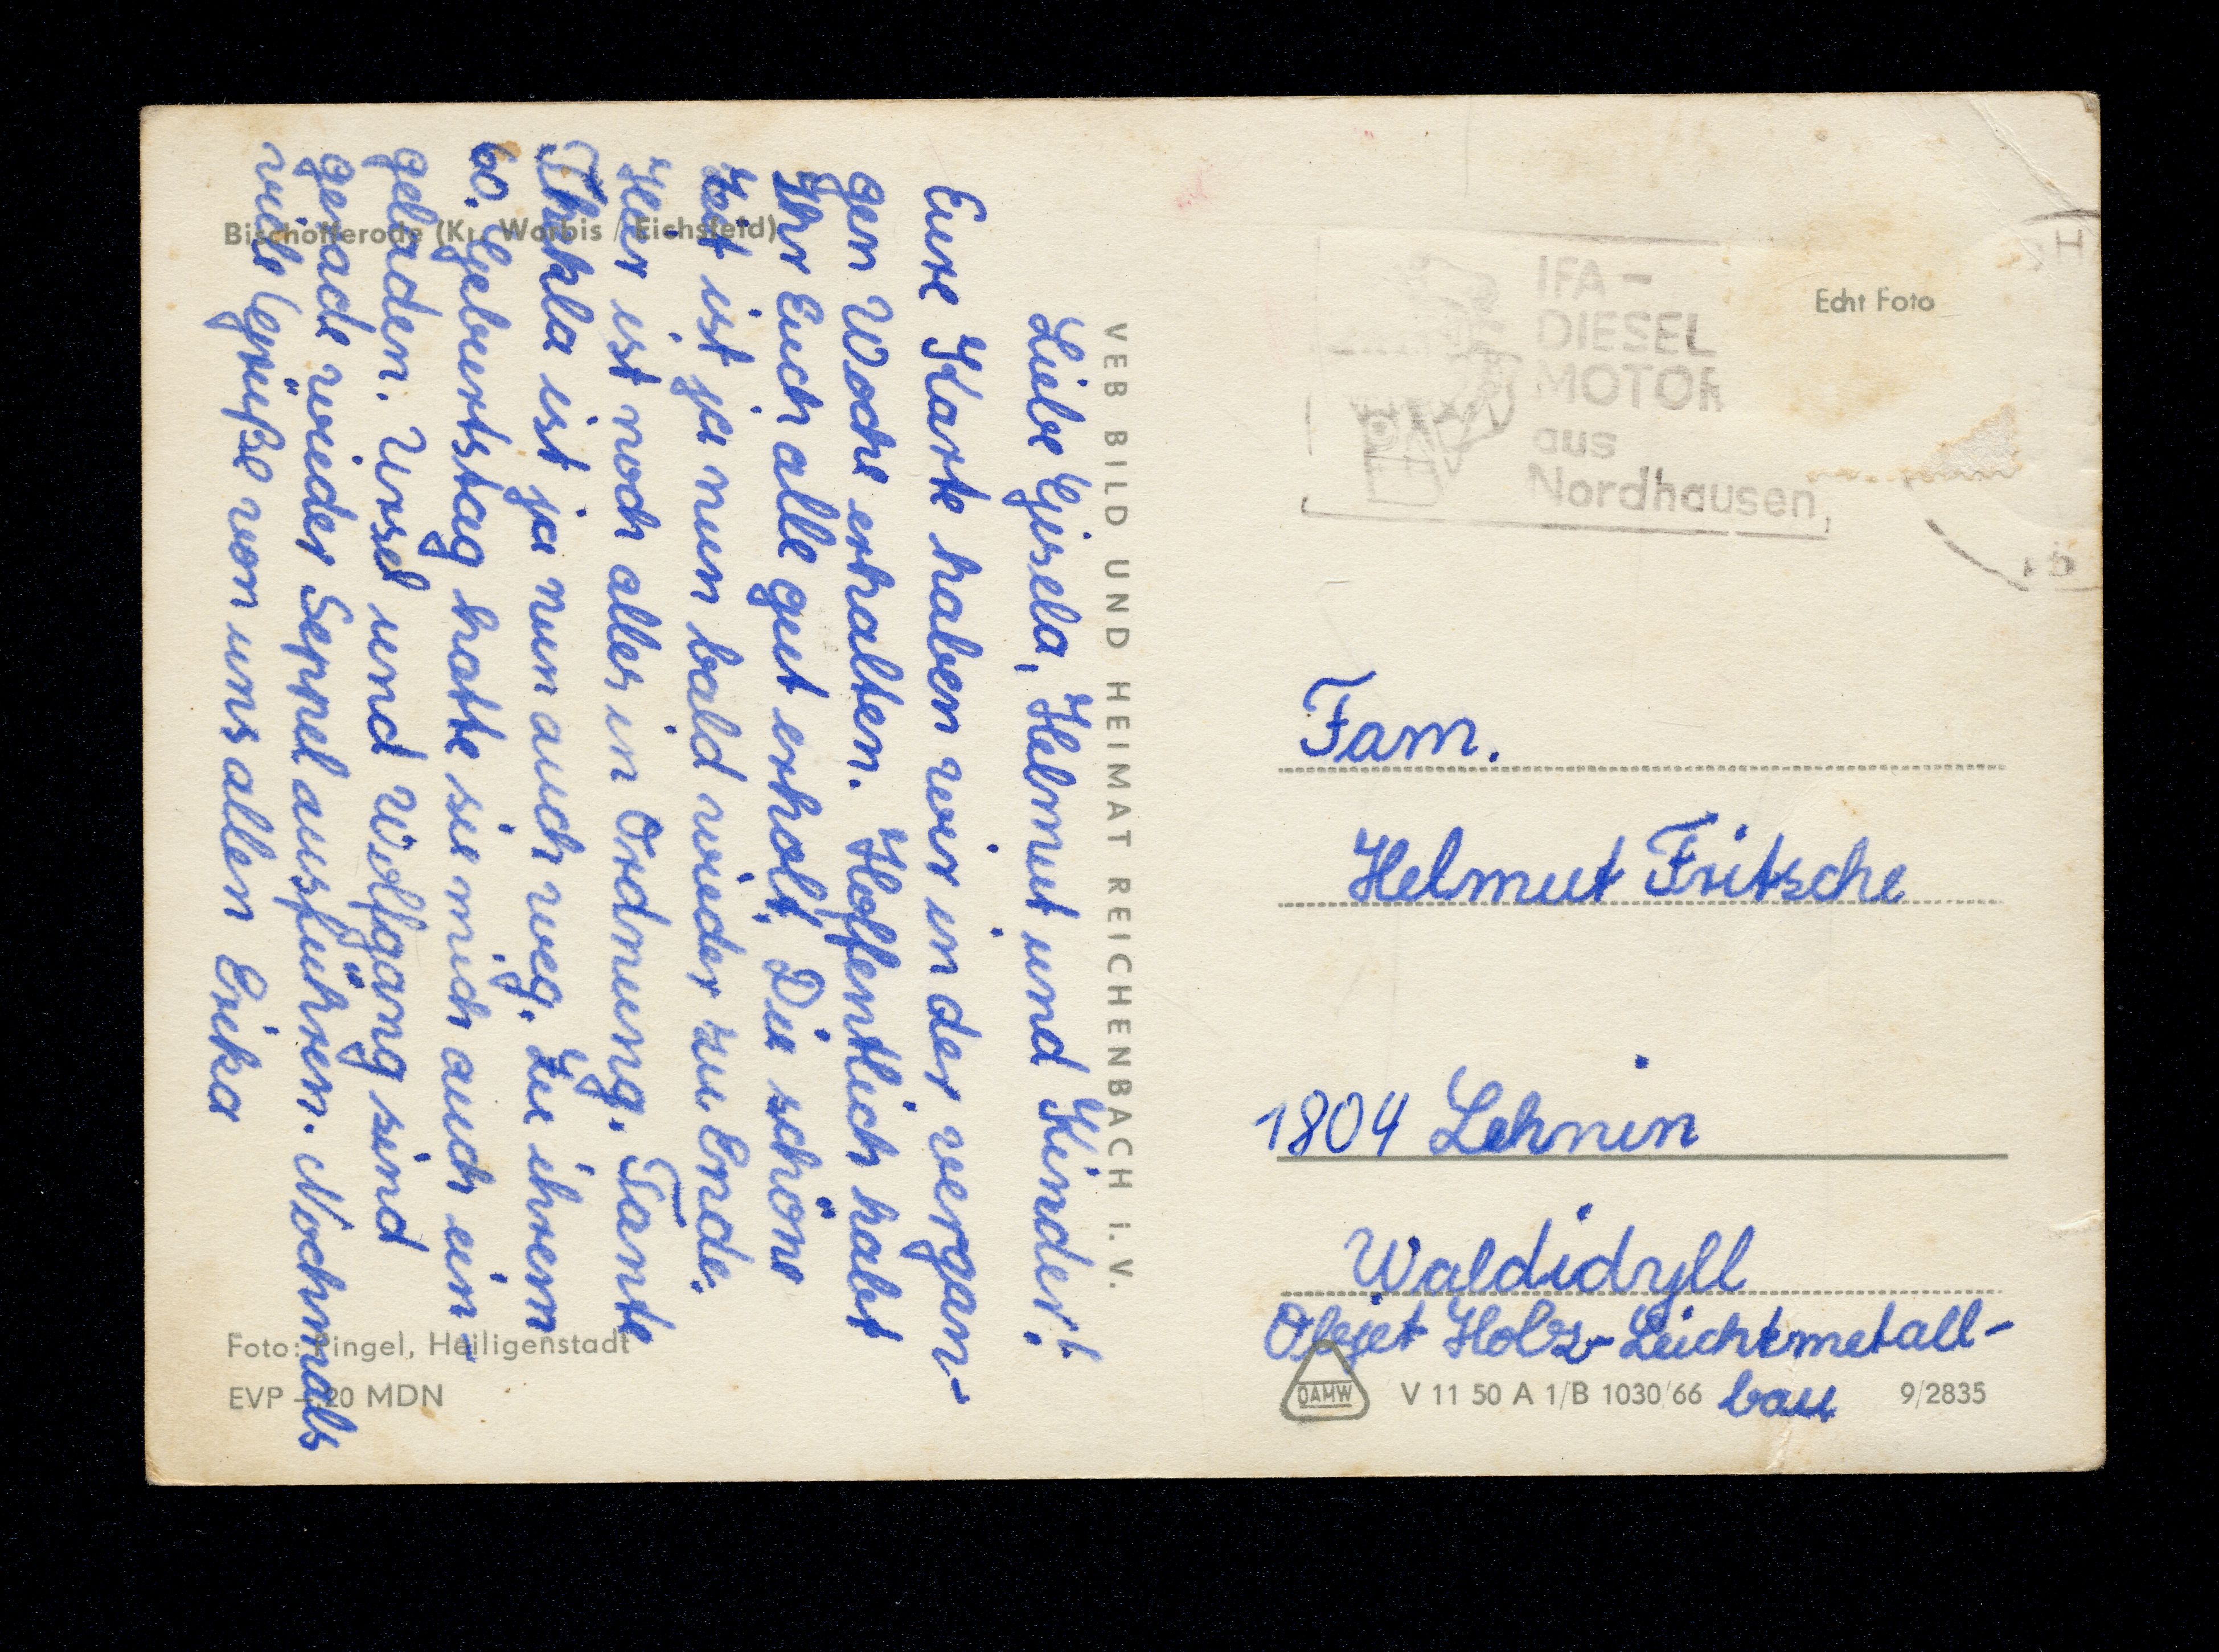 Bischofferode (Kr. Worbis / Eichsfeld)
Liebe Gisela, Helmut und Kinder!
Eure Karte haben wir in der vergan-
gen Woche erhalten. Hoffentlich habt
Ihr Euch alle gut erholt. Die schöne
Zeit ist ja nun bald wieder zu Ende.
Hier ist noch alles in Ordnung. Tante
Thekla ist ja nun auch weg. Zu ihrem
60. Geburtstag hatte sie mich auch ein-
geladen. Ursel und Wolfgang sind
gerade wieder Seppel ausführen. Nochmals
viele Grüße von uns allen Erika
Foto: Pingel, Heiligenstadt
EVP -,20 MDN
VEB BILD UND HEIMAT REICHENBACH i. V.
IFA -
DIESEL
MOTOR
aus
Nordhausen
Echt Foto
Fam.
Helmut Fritsche
1804 Lehnin
Waldidyll
Objet Holz- Leichtmetall-
bau
DAMW
V 11 50 A 1/B 1030/66
9/2835